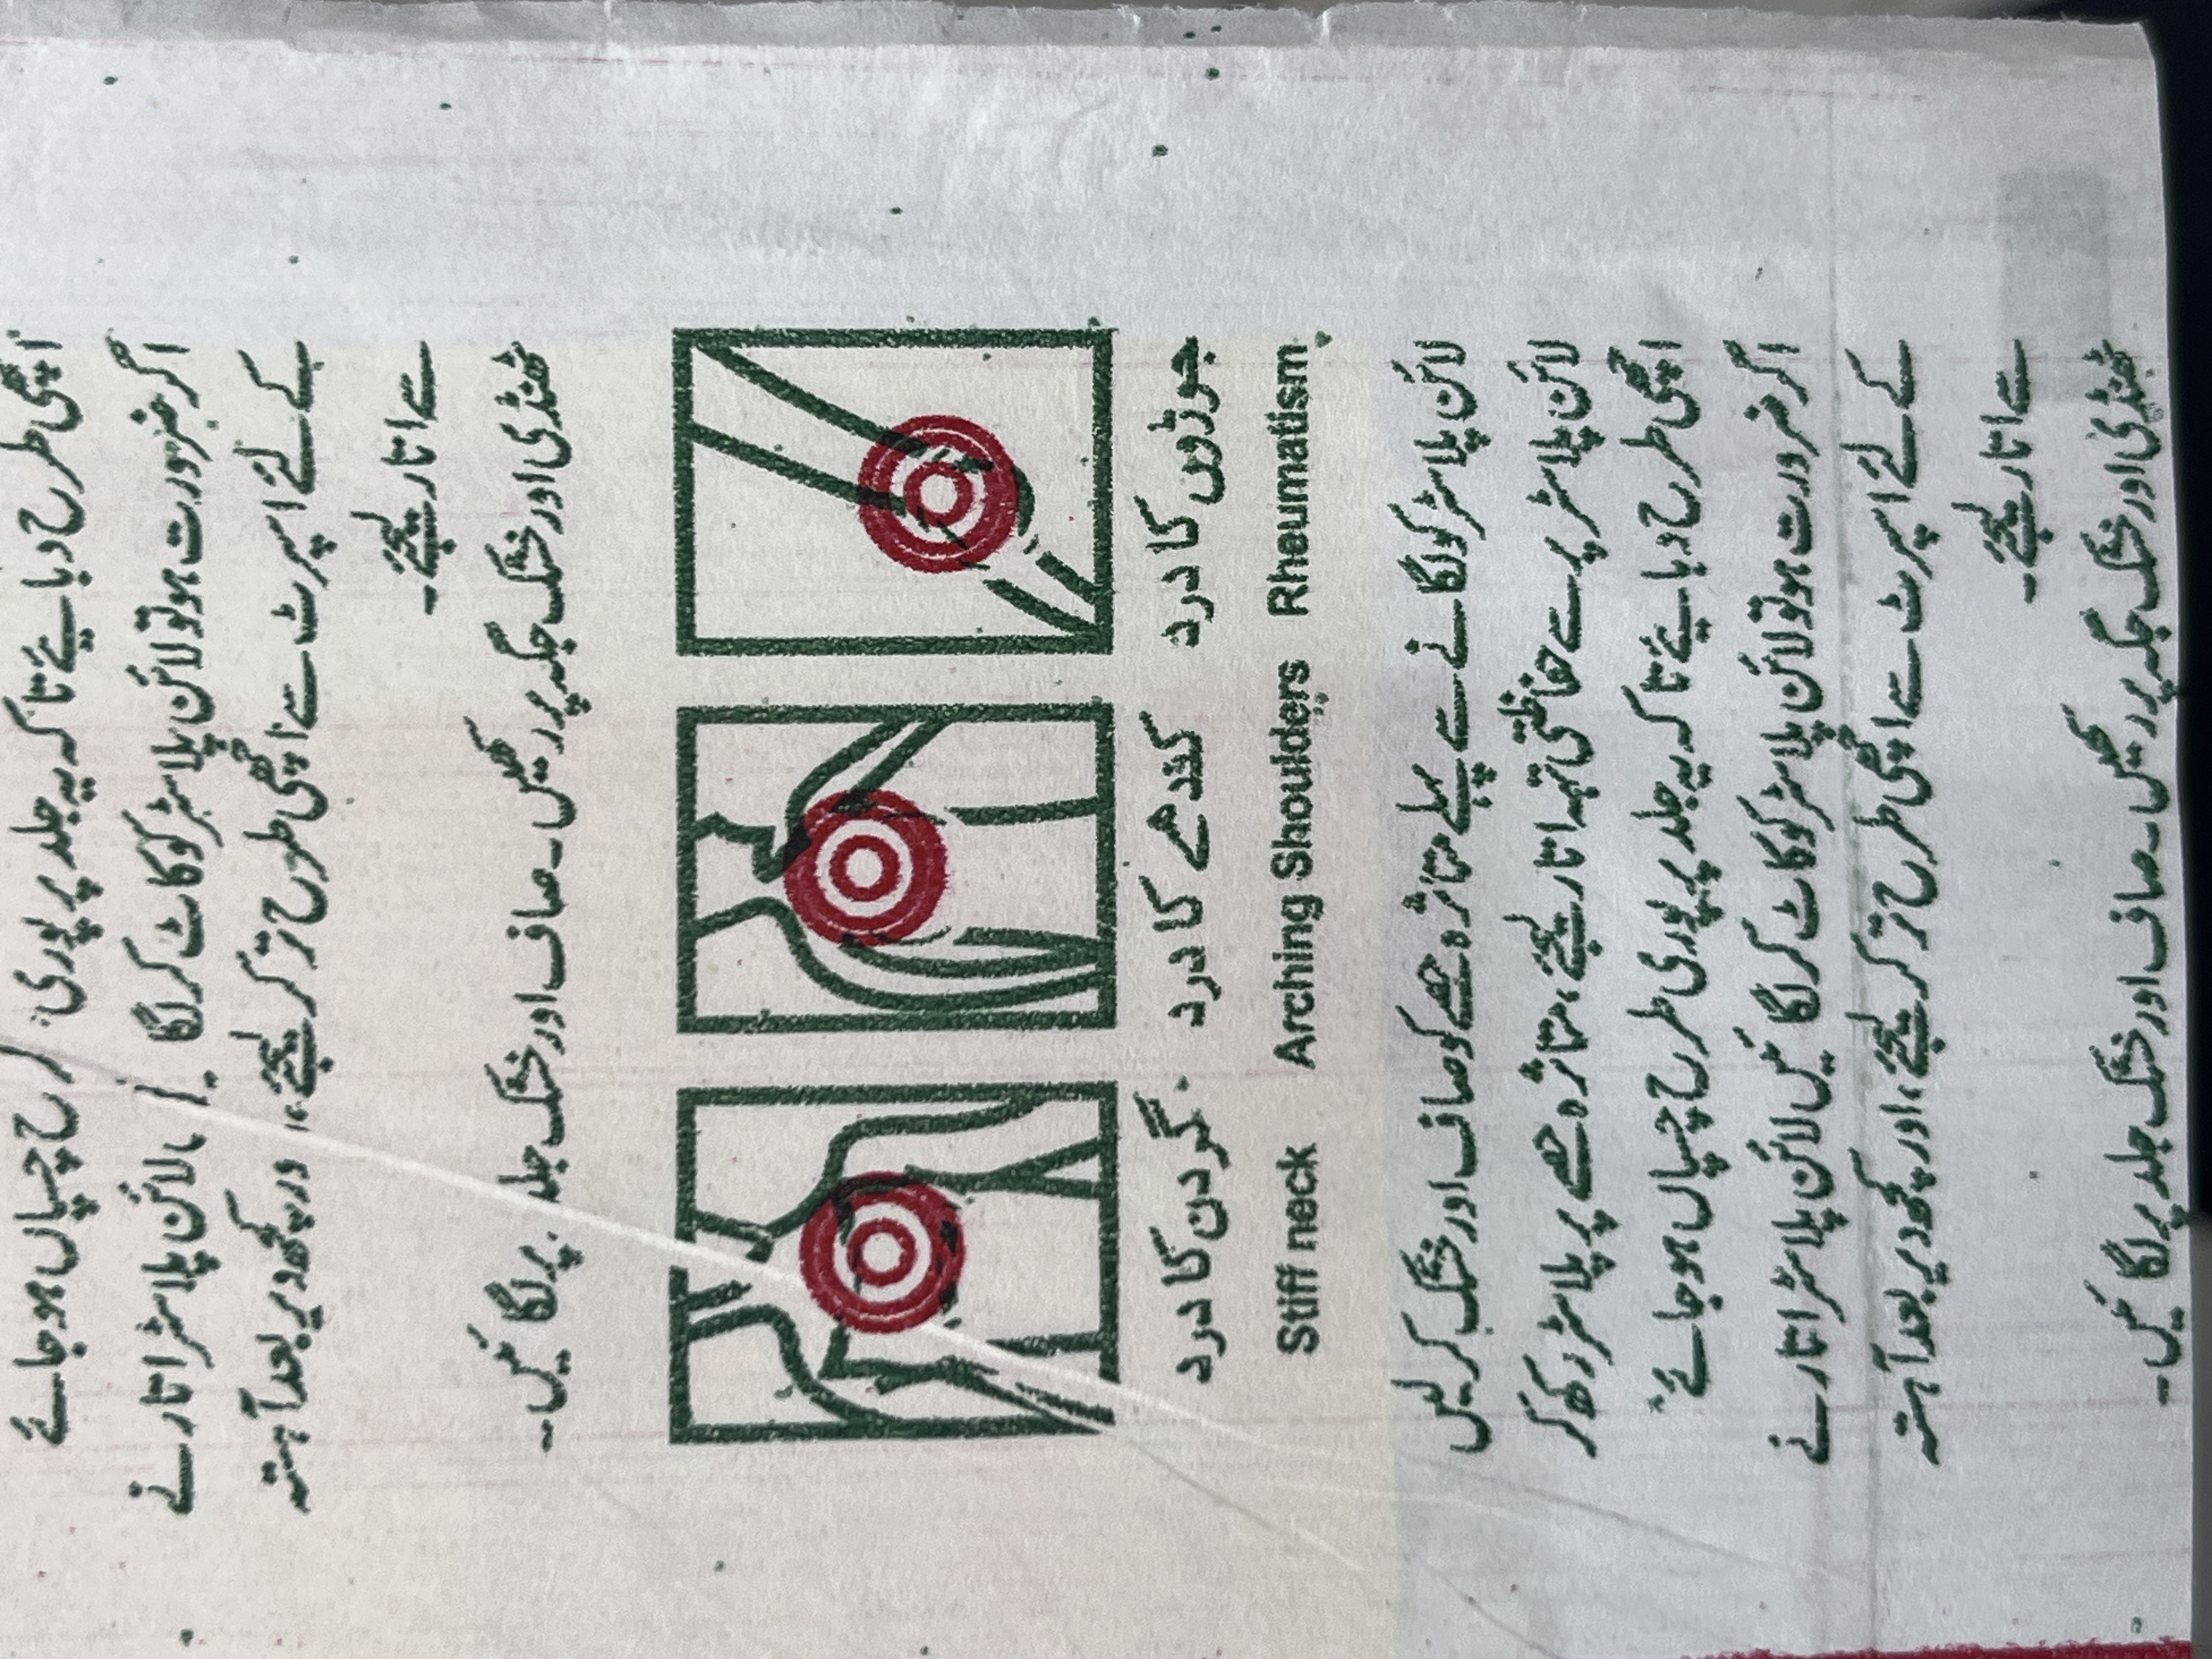 اچھی طرح دبایئے تاکہ یہ جلد پر پوری چسپاں ہوجائے
اگر ضرورت ہو تو لائن پلاسٹر کو کاٹ کر لگا لائن پلاسٹر اتارنے
کے لئے اسپرٹ سے اچھی طرح تر کرلیجئے، اور کچھ دیر بعد آہستہ
سے اتار لیجئے۔
ٹھنڈی اور خشک جگہ پر رکھیں۔ صاف اور خشک جلد پر لگائیں۔
جوڑوں کا درد کندھے کا درد گردن کا درد
Stiff neck Arching Shoulders Rheumatism
لائن پلاسٹر کو لگانے سے پہلے متاثرہ حصے کو صاف اور خشک کرلیں
لائن پلاسٹر پر سے حفاظتی تہہ اتار لیجئے، متاثرہ حصے پر پلاسٹر رکھ کر
اچھی طرح دبایئے تاکہ یہ جلد پر پوری طرح چسپاں ہوجائے
اگر ضرورت ہو تو لائن پلاسٹر کو کاٹ کر لگائیں لائن پلاسٹر اتارنے
کے لئے اسپرٹ سے اچھی طرح تر کرلیجئے، اور کچھ دیر بعد آہستہ
سے اتار لیجئے۔
ٹھنڈی اور خشک جگہ پر رکھیں۔ صاف اور خشک جلد پر لگائیں۔